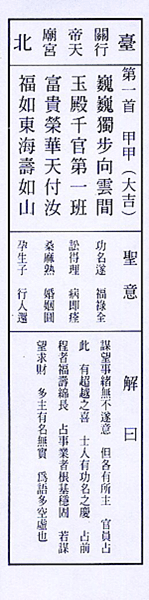 臺
關行
帝天
廟宮
北
第一首 甲甲(大吉)
巍巍獨步向雲間
玉殿千官第一班
富貴榮華天付汝
福如東海壽如山
聖意
功名遂 福祿全
訟得理 病即痊
桑麻熟 婚姻圓
孕生子 行人還
解曰
謀望事緒無不遂意 但各有所主 官員占
此 有超越之喜 士人有功名之慶 占前
程者福壽綿長 占事業者根基穩固 若謀
望求財 多主有名無實 為語多空虛也